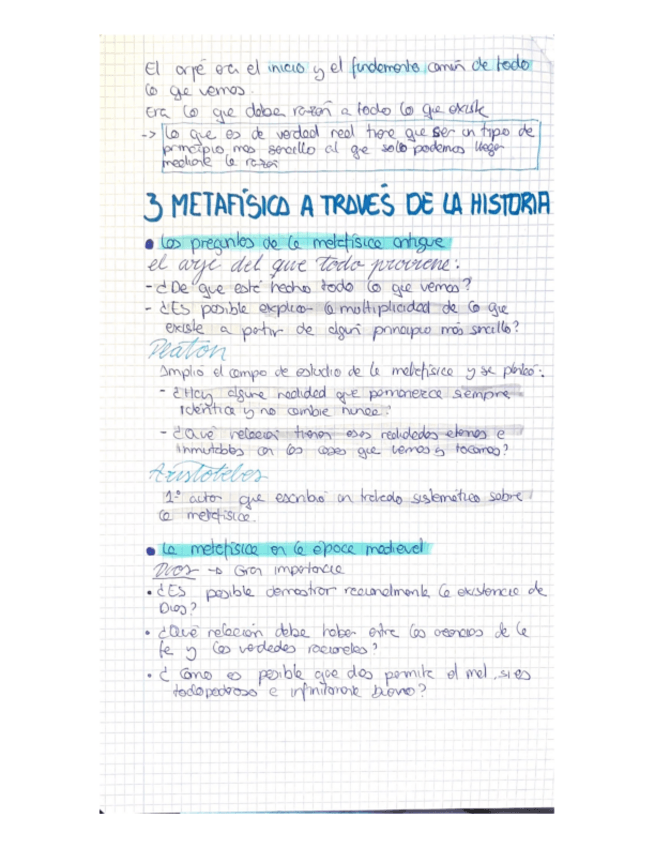 El arjé era el inicio y el fundamento común de todo
lo que vemos.
Era lo que daba razón a todo lo que existe
-> Lo que es de verdad real tiene que ser un tipo de
principio mas sencillo al que solo podemos llegar
mediante la razón
3 METAFÍSICA A TRAVÉS DE LA HISTORIA
• Las preguntas de la metafísica antigua
el arjé del que todo proviene:
- ¿De que esté hecho todo lo que vemos?
- ¿Es posible explicar la multiplicidad de lo que
existe a partir de algún principio más sencillo?
Platón
Amplió el campo de estudio de la metafísica y se planteó:
- ¿Hay alguna realidad que permanezca siempre
idéntica y no cambie nunca?
- ¿Qué relación tienen esas realidades eternas e
inmutables con las cosas que vemos y tocamos?
Aristoteles
1º autor que escribió un tratado sistemático sobre
la metafísica.
• La metafísica en la época medieval
Dios -> Gran importancia
• ¿Es posible demostrar racionalmente la existencia de
Dios?
• ¿Qué relación debe haber entre las creencias de la
fe y las verdades racionales?
• ¿Como es posible que dios permita el mal, si es
todopoderoso e infinitamente bueno?